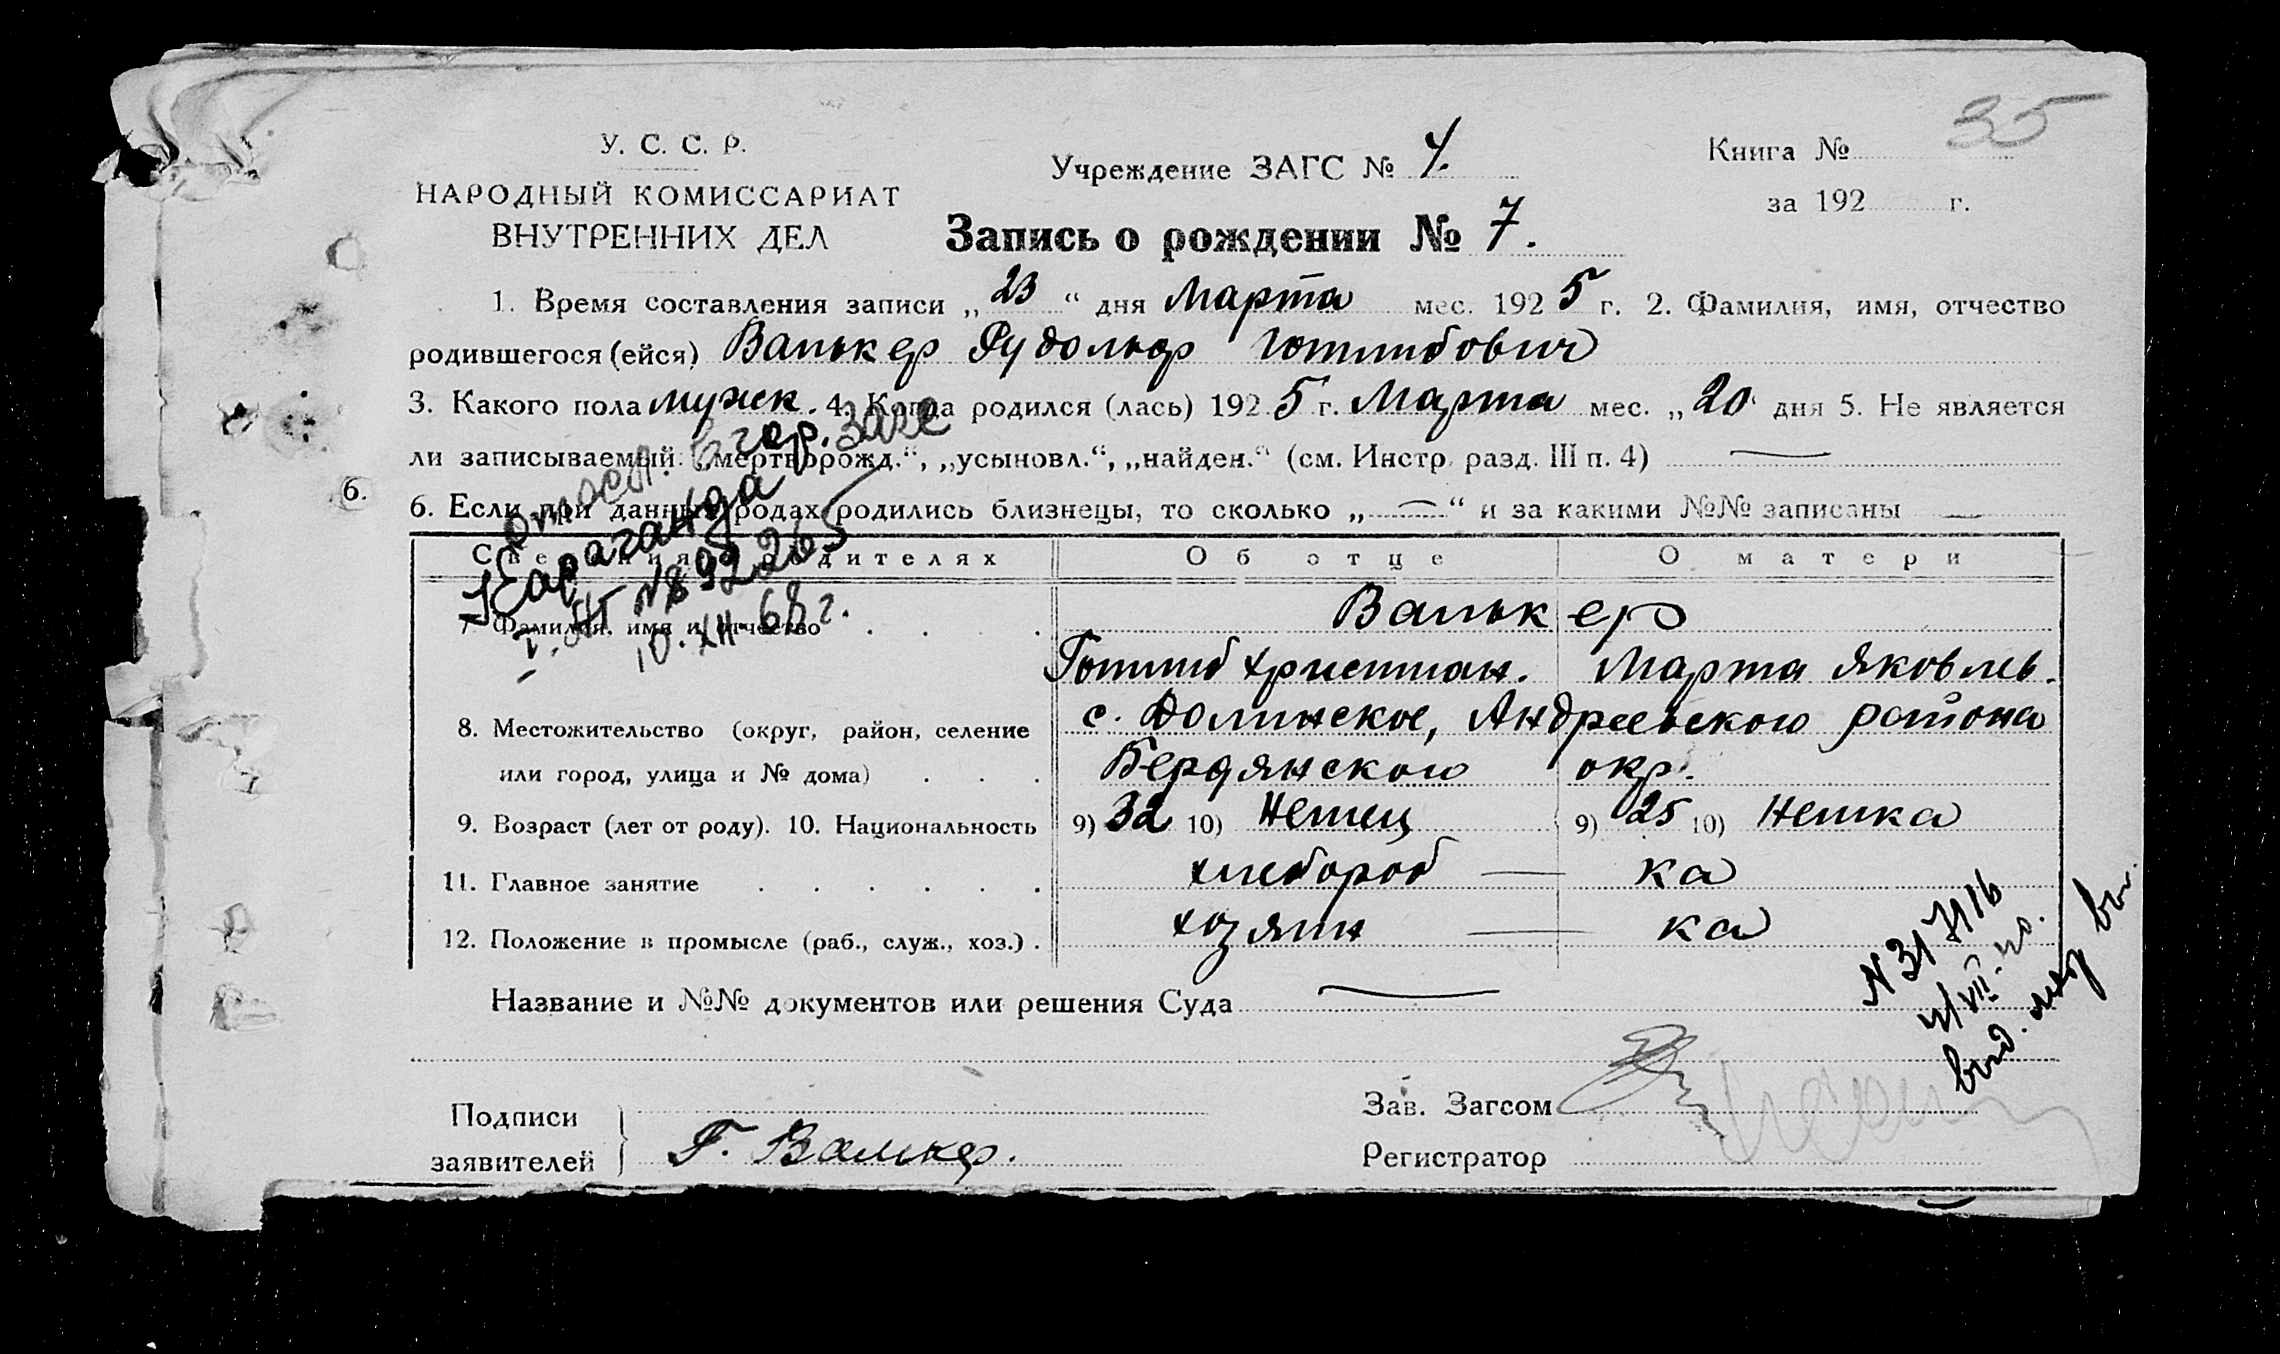 35
У. С. С. Р.
НАРОДНЫЙ КОМИССАРИАТ
ВНУТРЕННИХ ДЕЛ
Учреждение ЗАГС №
Книга №
за 192 г.
Запись о рождении № 7.
1. Время составления записи „23“ дня Марта мес. 1925 г. 2. Фамилия, имя, отчество
родившегося (ейся) Валькер Рудольф Готлибович
3. Какого пола мужск. 4. Когда родился (лась) 1925 г. Марта мес. „20 дня 5. Не является
ли записываемый: „мертворожд.“, „усыновл.“, „найден.“ (см. Инстр. разд. III п. 4) —
6.
6. Если при данных родах родились близнецы, то сколько „—“ и за какими №№ записаны —
в гор. ЗАГС
Караганда
№ 892265
10.XII-68 г.
Сведения о родителях
Об отце
О матери
7. Фамилия, имя и отчество . . . .
Валькер
Готлиб Христиан. Марта Яковлев.
8. Местожительство (округ, район, селение
с. Долинское, Андреевского района
или город, улица и № дома) . . .
Бердянского окр.
9. Возраст (лет от роду). 10. Национальность
9) 32 10) Немец
9) 25 10) Немка
11. Главное занятие . . . . . .
хлебороб — ка
12. Положение в промысле (раб., служ., хоз.) .
хозяин — ка
Название и №№ документов или решения Суда —
N 317116
выд.
Подписи
заявителей
Г. Валькер.
Зав. Загсом
Регистратор